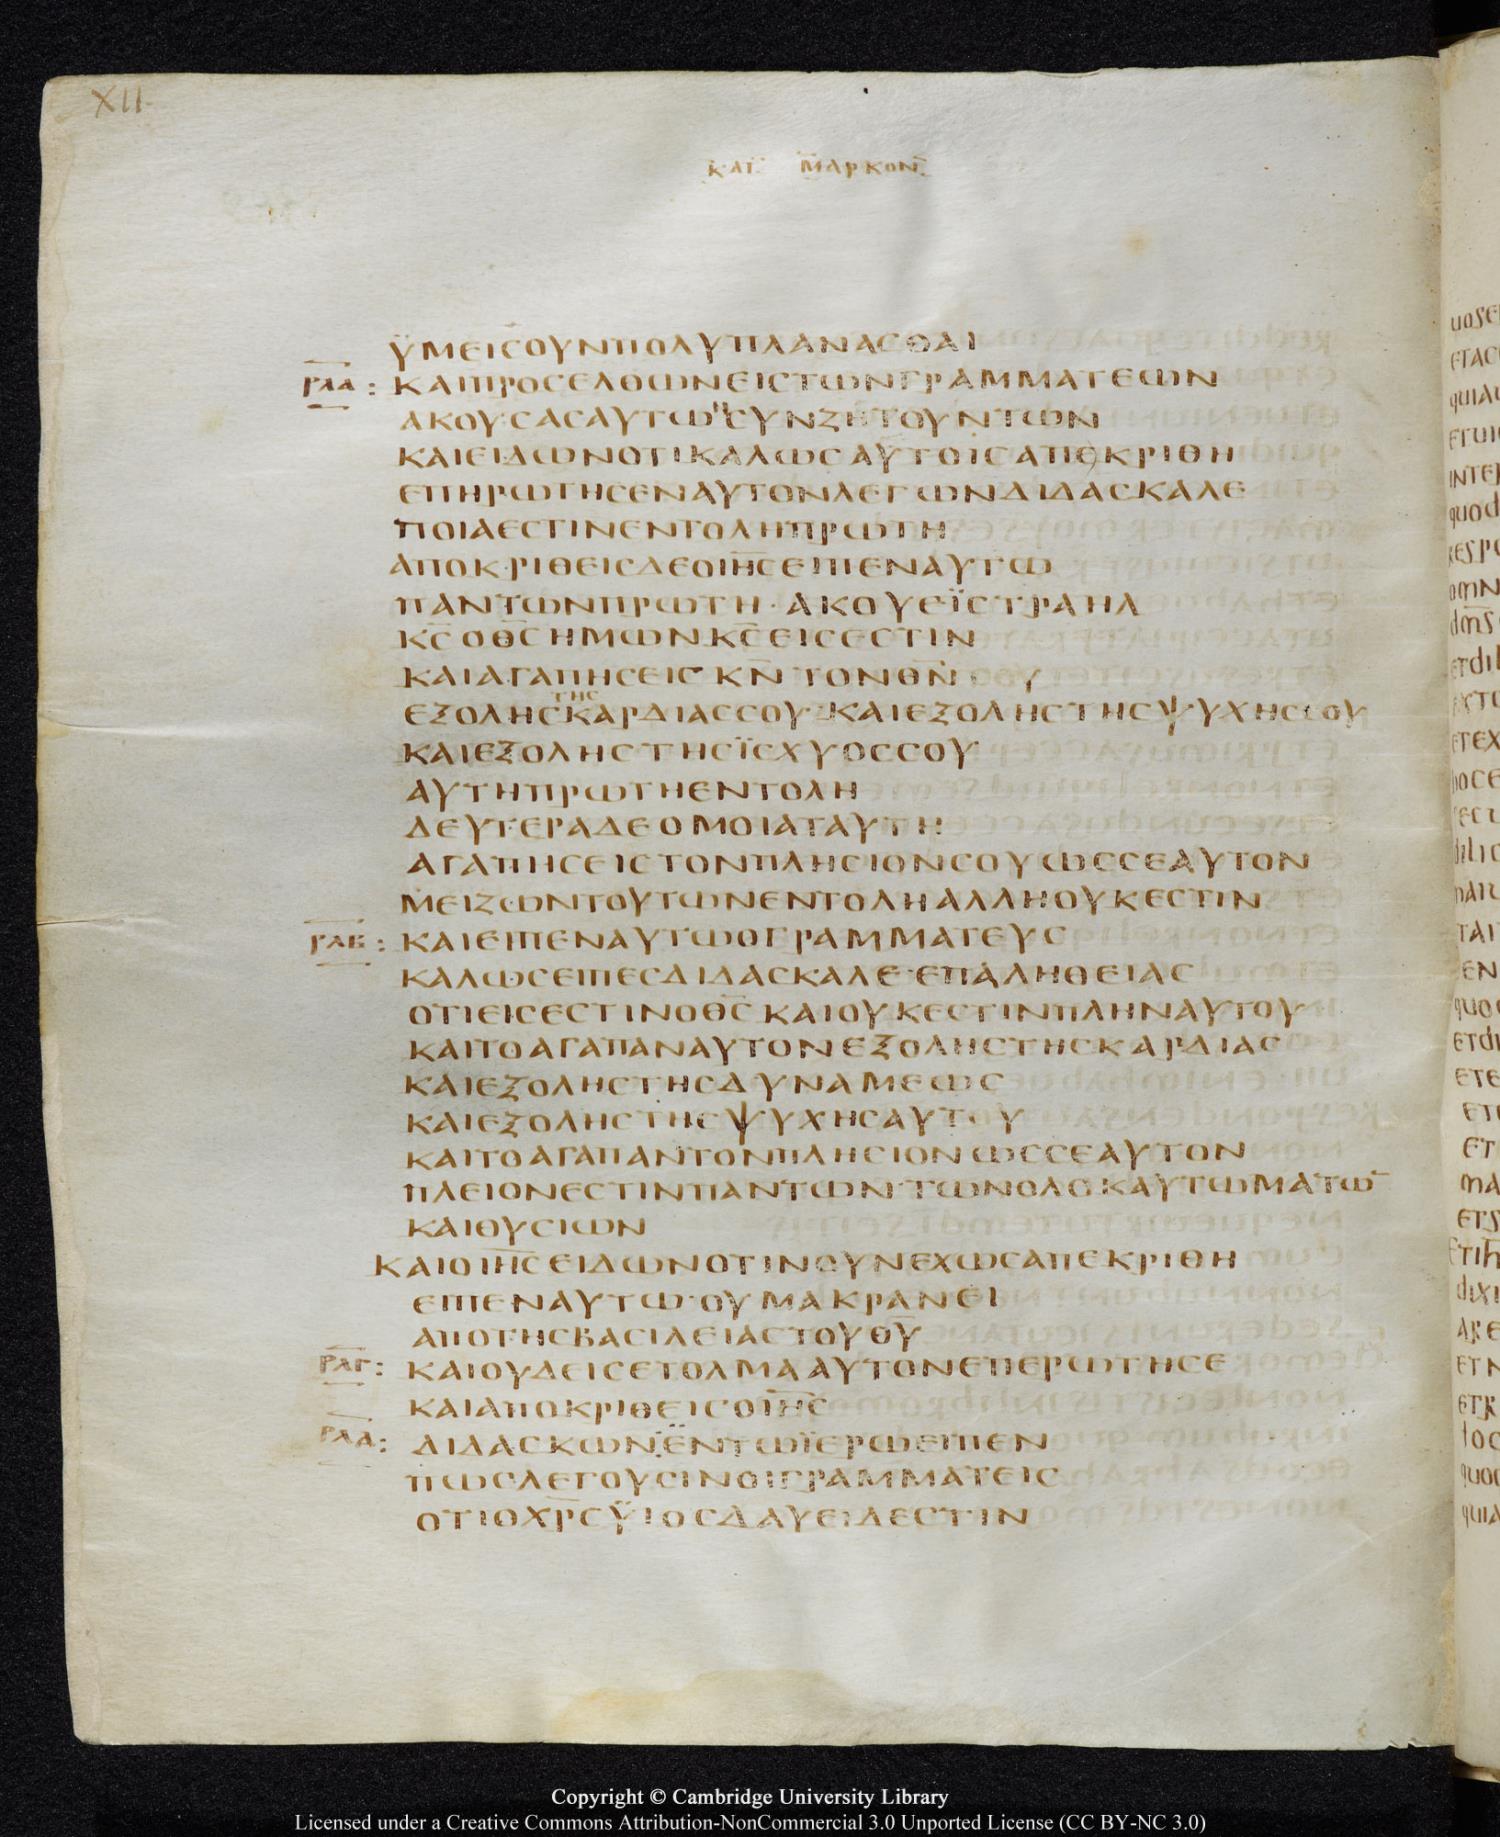 XII
ΚΑΤ ΜΑΡΚΟΝ
ΫΜΕΙСΟΥΝΠΟΛΥΠΛΑΝΑСΘΑΙ
ΡΛΑ: ΚΑΙΠΡΟСΕΛΘΩΝΕΙСΤΩΝΓΡΑΜΜΑΤΕΩΝ
ΑΚΟΥСΑСΑΥΤΩΝСΥΝΖΗΤΟΥΝΤΩΝ
ΚΑΙΕΙΔΩΝΟΤΙΚΑΛΩСΑΥΤΟΙСΑΠΕΚΡΙΘΗ
ΕΠΗΡΩΤΗСΕΝΑΥΤΟΝΛΕΓΩΝΔΙΔΑСΚΑΛΕ
ΠΟΙΑΕСΤΙΝΕΝΤΟΛΗΠΡΩΤΗ
ΑΠΟΚΡΙΘΕΙСΔΕΟΙΗ̅СΕΙΠΕΝΑΥΤΩ
ΠΑΝΤΩΝΠΡΩΤΗ · ΑΚΟΥΕΪСΤΡΑΗΛ
ΚС̅ ΟΘС̅ΗΜΩΝΚС̅ΕΙСΕСΤΙΝ
ΚΑΙΑΓΑΠΗСΕΙС ΚΝ̅ ΤΟΝΘΝ̅ СΟΥ
ΤΗС
ΕΞΟΛΗСΚΑΡΔΙΑССΟΥ·ΚΑΙΕΞΟΛΗСΤΗСΨΥΧΗССΟΥ
ΚΑΙΕΞΟΛΗСΤΗСΪСΧΥΟССΟΥ
ΑΥΤΗΠΡΩΤΗΕΝΤΟΛΗ
ΔΕΥΤΕΡΑΔΕΟΜΟΙΑΤΑΥΤΗ
ΑΓΑΠΗСΕΙСΤΟΝΠΛΗСΙΟΝСΟΥΩССΕΑΥΤΟΝ
ΜΕΙΖΩΝΤΟΥΤΩΝΕΝΤΟΛΗΑΛΛΗΟΥΚΕСΤΙΝ
ΡΛΒ: ΚΑΙΕΙΠΕΝΑΥΤΩΟΓΡΑΜΜΑΤΕΥС
ΚΑΛΩСΕΙΠΕСΔΙΔΑСΚΑΛΕ·ΕΠΑΛΗΘΕΙΑС
ΟΤΙΕΙСΕСΤΙΝΟΘС̅ ΚΑΙΟΥΚΕСΤΙΝΠΛΗΝΑΥΤΟΥ
ΚΑΙΤΟΑΓΑΠΑΝΑΥΤΟΝΕΞΟΛΗСΤΗСΚΑΡΔΙΑС
ΚΑΙΕΞΟΛΗСΤΗСΔΥΝΑΜΕΩС
ΚΑΙΕΞΟΛΗСΤΗСΨΥΧΗСΑΥΤΟΥ
ΚΑΙΤΟΑΓΑΠΑΝΤΟΝΠΛΗСΙΟΝΩССΕΑΥΤΟΝ
ΠΛΕΙΟΝΕСΤΙΝΠΑΝΤΩΝ·ΤΩΝΟΛΟΚΑΥΤΩΜΑΤΩ̅
ΚΑΙΘΥСΙΩΝ
ΚΑΙΟΙΗ̅СΕΙΔΩΝΟΤΙΝΟΥΝΕΧΩСΑΠΕΚΡΙΘΗ
ΕΙΠΕΝΑΥΤΩ·ΟΥΜΑΚΡΑΝΕΙ
ΑΠΟΤΗСΒΑСΙΛΕΙΑСΤΟΥΘΥ̅
ΡΛΓ: ΚΑΙΟΥΔΕΙСΕΤΟΛΜΑΑΥΤΟΝΕΠΕΡΩΤΗСΕ
ΚΑΙΑΠΟΚΡΙΘΕΙСΟΙΗ̅С
ΡΛΔ: ΔΙΔΑСΚΩΝΕΝΤΩΪΕΡΩΕΙΠΕΝ
ΠΩСΛΕΓΟΥСΙΝΟΙΓΡΑΜΜΑΤΕΙС
ΟΤΙΟΧΡ̅СΫΙΟСΔΑΥΕΙΔΕСΤΙΝ
Copyright © Cambridge University Library
Licensed under a Creative Commons Attribution-NonCommercial 3.0 Unported License (CC BY-NC 3.0)